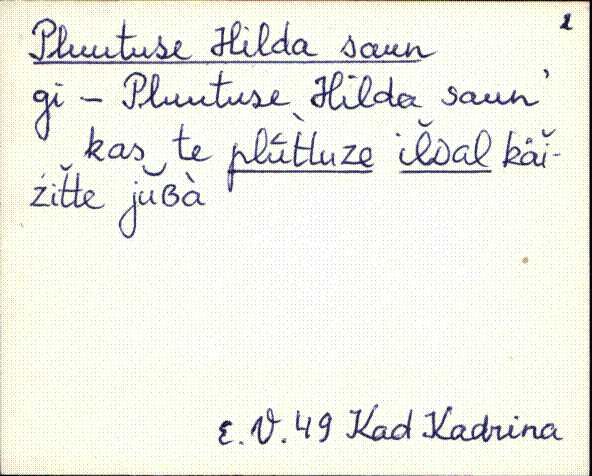 1
Pluutuse Hilda saun
gi – Pluutuse Hilda saun'
kas te plūt̀tuze ilDal käi-
žitte jũBà
E. V. 49 Kad Kadrina